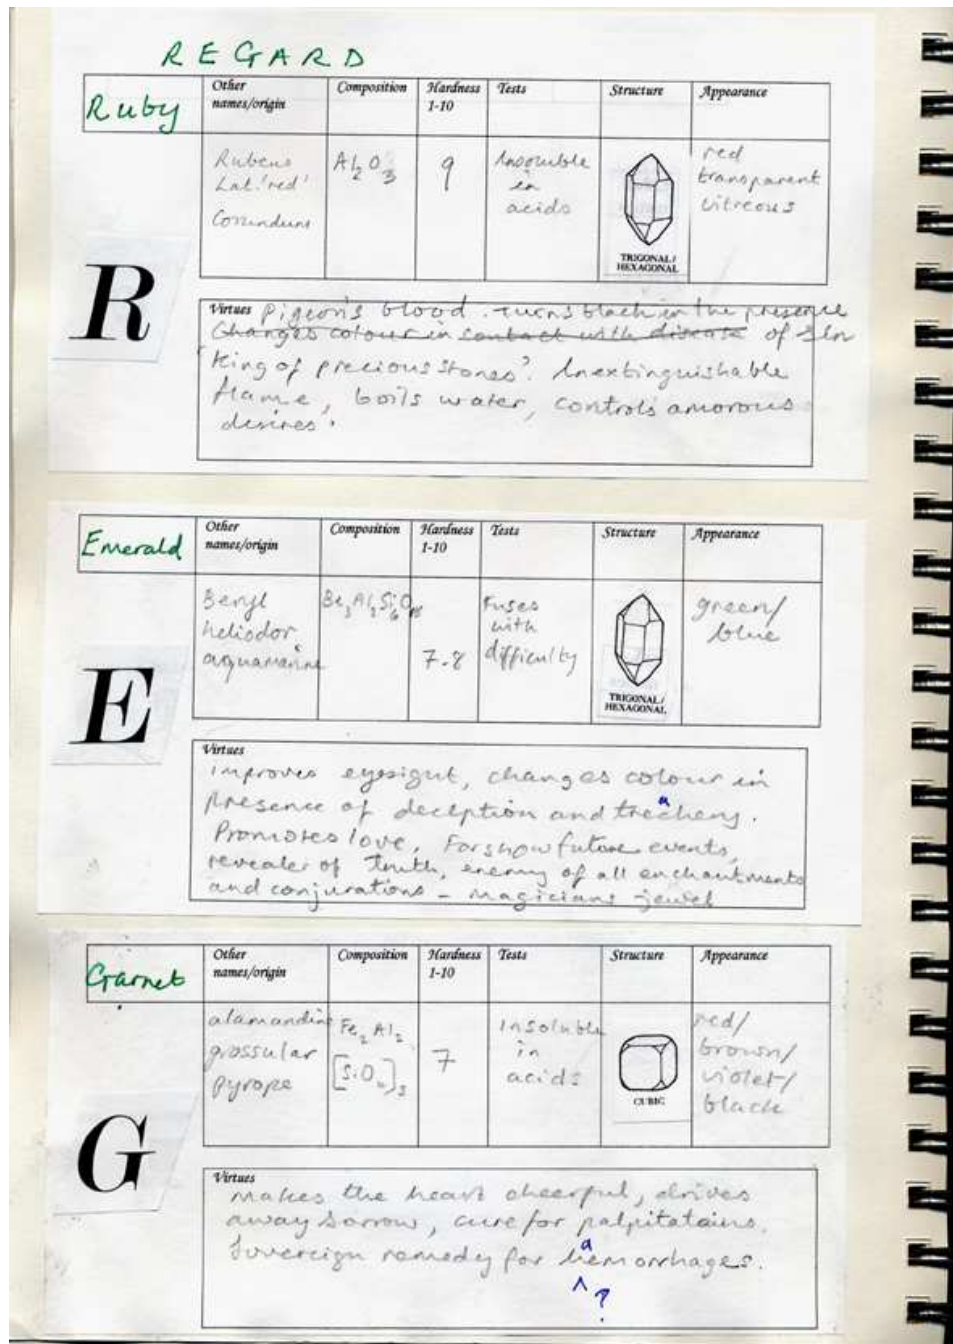 REGARD
Ruby
Other names/origin
Composition
Hardness 1-10
Tests
Structure
Appearance
Rubens
Lat. 'red'
Corundum
Al2O3
9
Insoluble
in
acids
TRIGONAL/
HEXAGONAL
red
transparent
vitreous
R
Virtues pigeons blood. turns black in the presence
Changes colour in contact with disease of sin
'King of precious stones'. Inextinguishable
flame, boils water, controls amorous
desires.
Emerald
Other names/origin
Composition
Hardness 1-10
Tests
Structure
Appearance
Beryl
heliodor
aquamarine
Be3Al2Si6O18
7.8
Fuses
with
difficulty
TRIGONAL/
HEXAGONAL
green/
blue
E
Virtues
improves eyesight, changes colour in
presence of deception and treachery.
Promotes love, Forshow future events,
revealer of Truth, enemy of all enchantments
and conjurations - magicians jewel
Garnet
Other names/origin
Composition
Hardness 1-10
Tests
Structure
Appearance
alamandine
grossular
pyrope
Fe2 Al2
[SiO4]3
7
Insoluble
in
acids
CUBIC
red/
brown/
violet/
black
G
Virtues
makes the heart cheerful, drives
away sorrow, cure for palpitatains.
Sovereign remedy for haemorrhages.
?